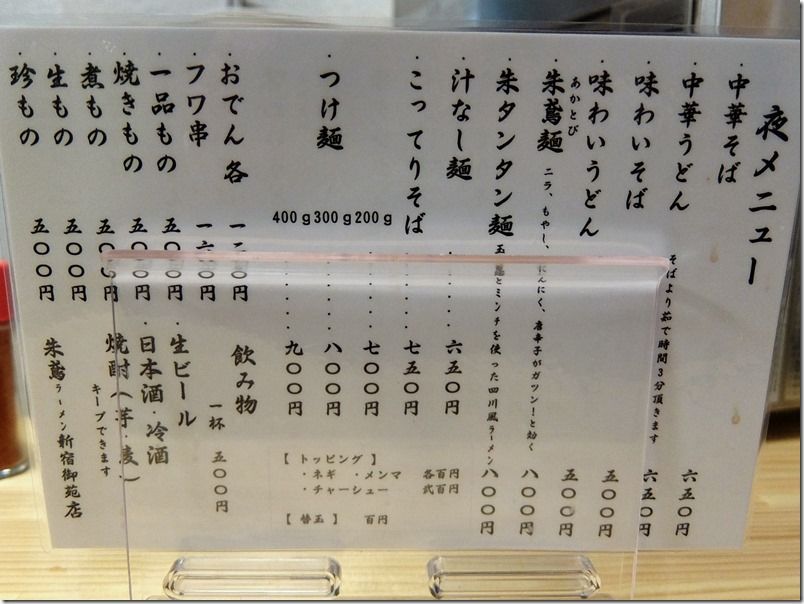 夜メニュー
・中華そば 六五〇円
・中華うどん そばより茹で時間3分頂きます 六五〇円
・味わいそば 五〇〇円
・味わいうどん 五〇〇円
・朱鳶麺 あかとび ニラ、もやし、にんにく、唐辛子がガツン!と効く 八〇〇円
・朱タンタン麺 とミンチを使った四川風ラーメン 八〇〇円
・汁なし麺 ・・・・・ 六五〇円
・こってりそば ・・・・ 七五〇円
・つけ麺
200g ・・・・・ 七〇〇円
300g ・・・・・ 八〇〇円
400g ・・・・・ 九〇〇円
【トッピング】
・ネギ ・メンマ 各百円
・チャーシュー 弐百円
【替玉】 百円
・おでん各
・フワ串
・一品もの 五〇〇円
・焼きもの 五〇〇円
・煮もの 五〇〇円
・生もの 五〇〇円
・珍もの 五〇〇円
飲み物
一杯 五〇〇円
・生ビール
・日本酒・冷酒
・焼酎(芋・麦)
キープできます
朱鳶ラーメン新宿御苑店